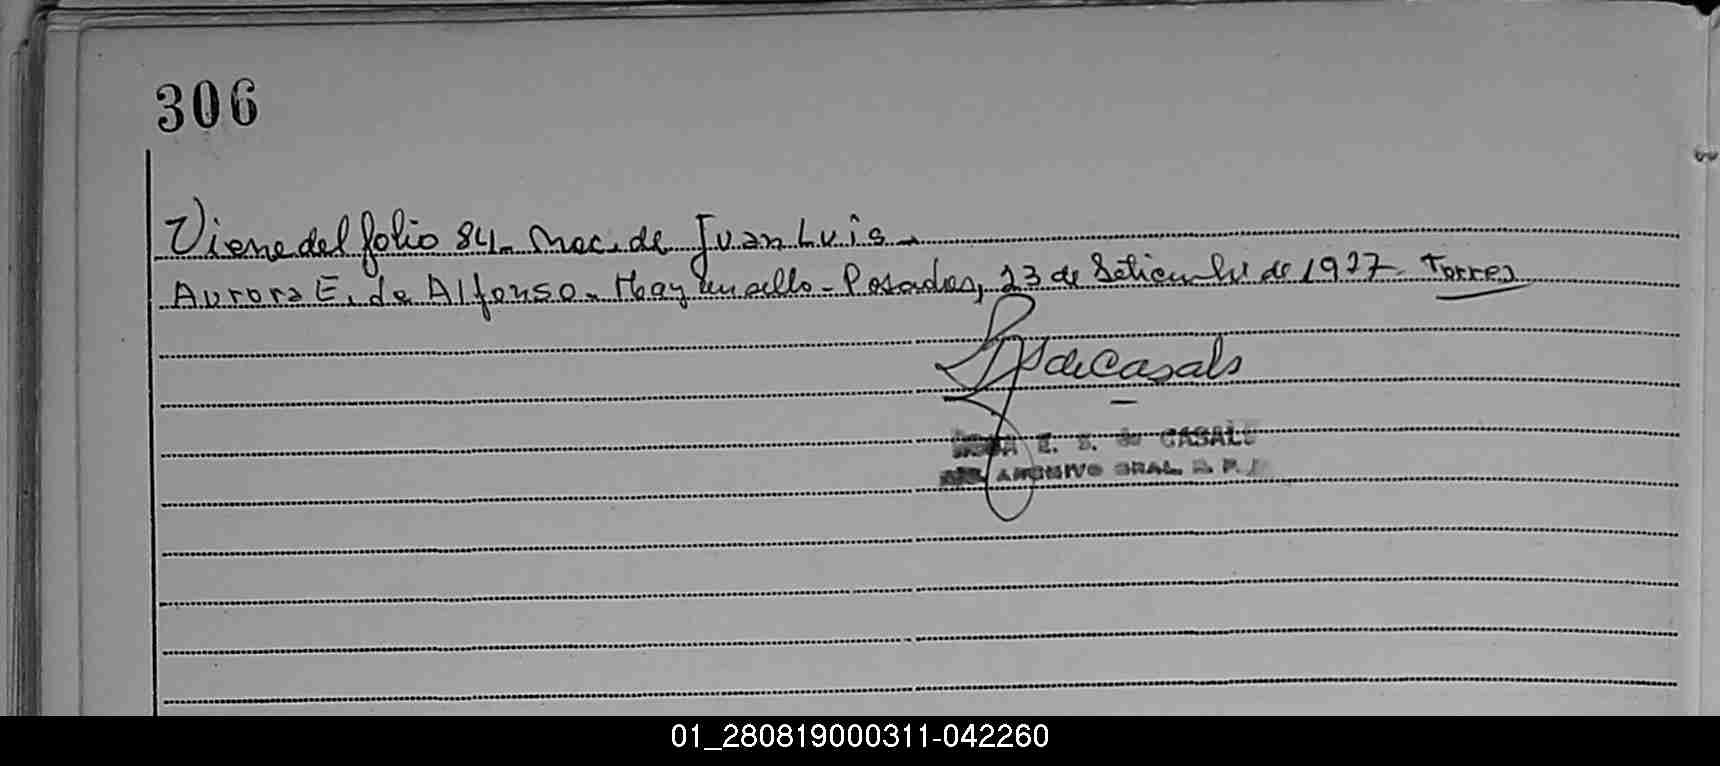 306
Viene del folio 84. Nac. de Juan Luis.
Aurora E. de Alfonso. Hay un sello - Posadas, 23 de Setiembre de 1937. Torres
de Casals
E. S. de CASALS
ARCHIVO GRAL. R. P.
01_280819000311-042260